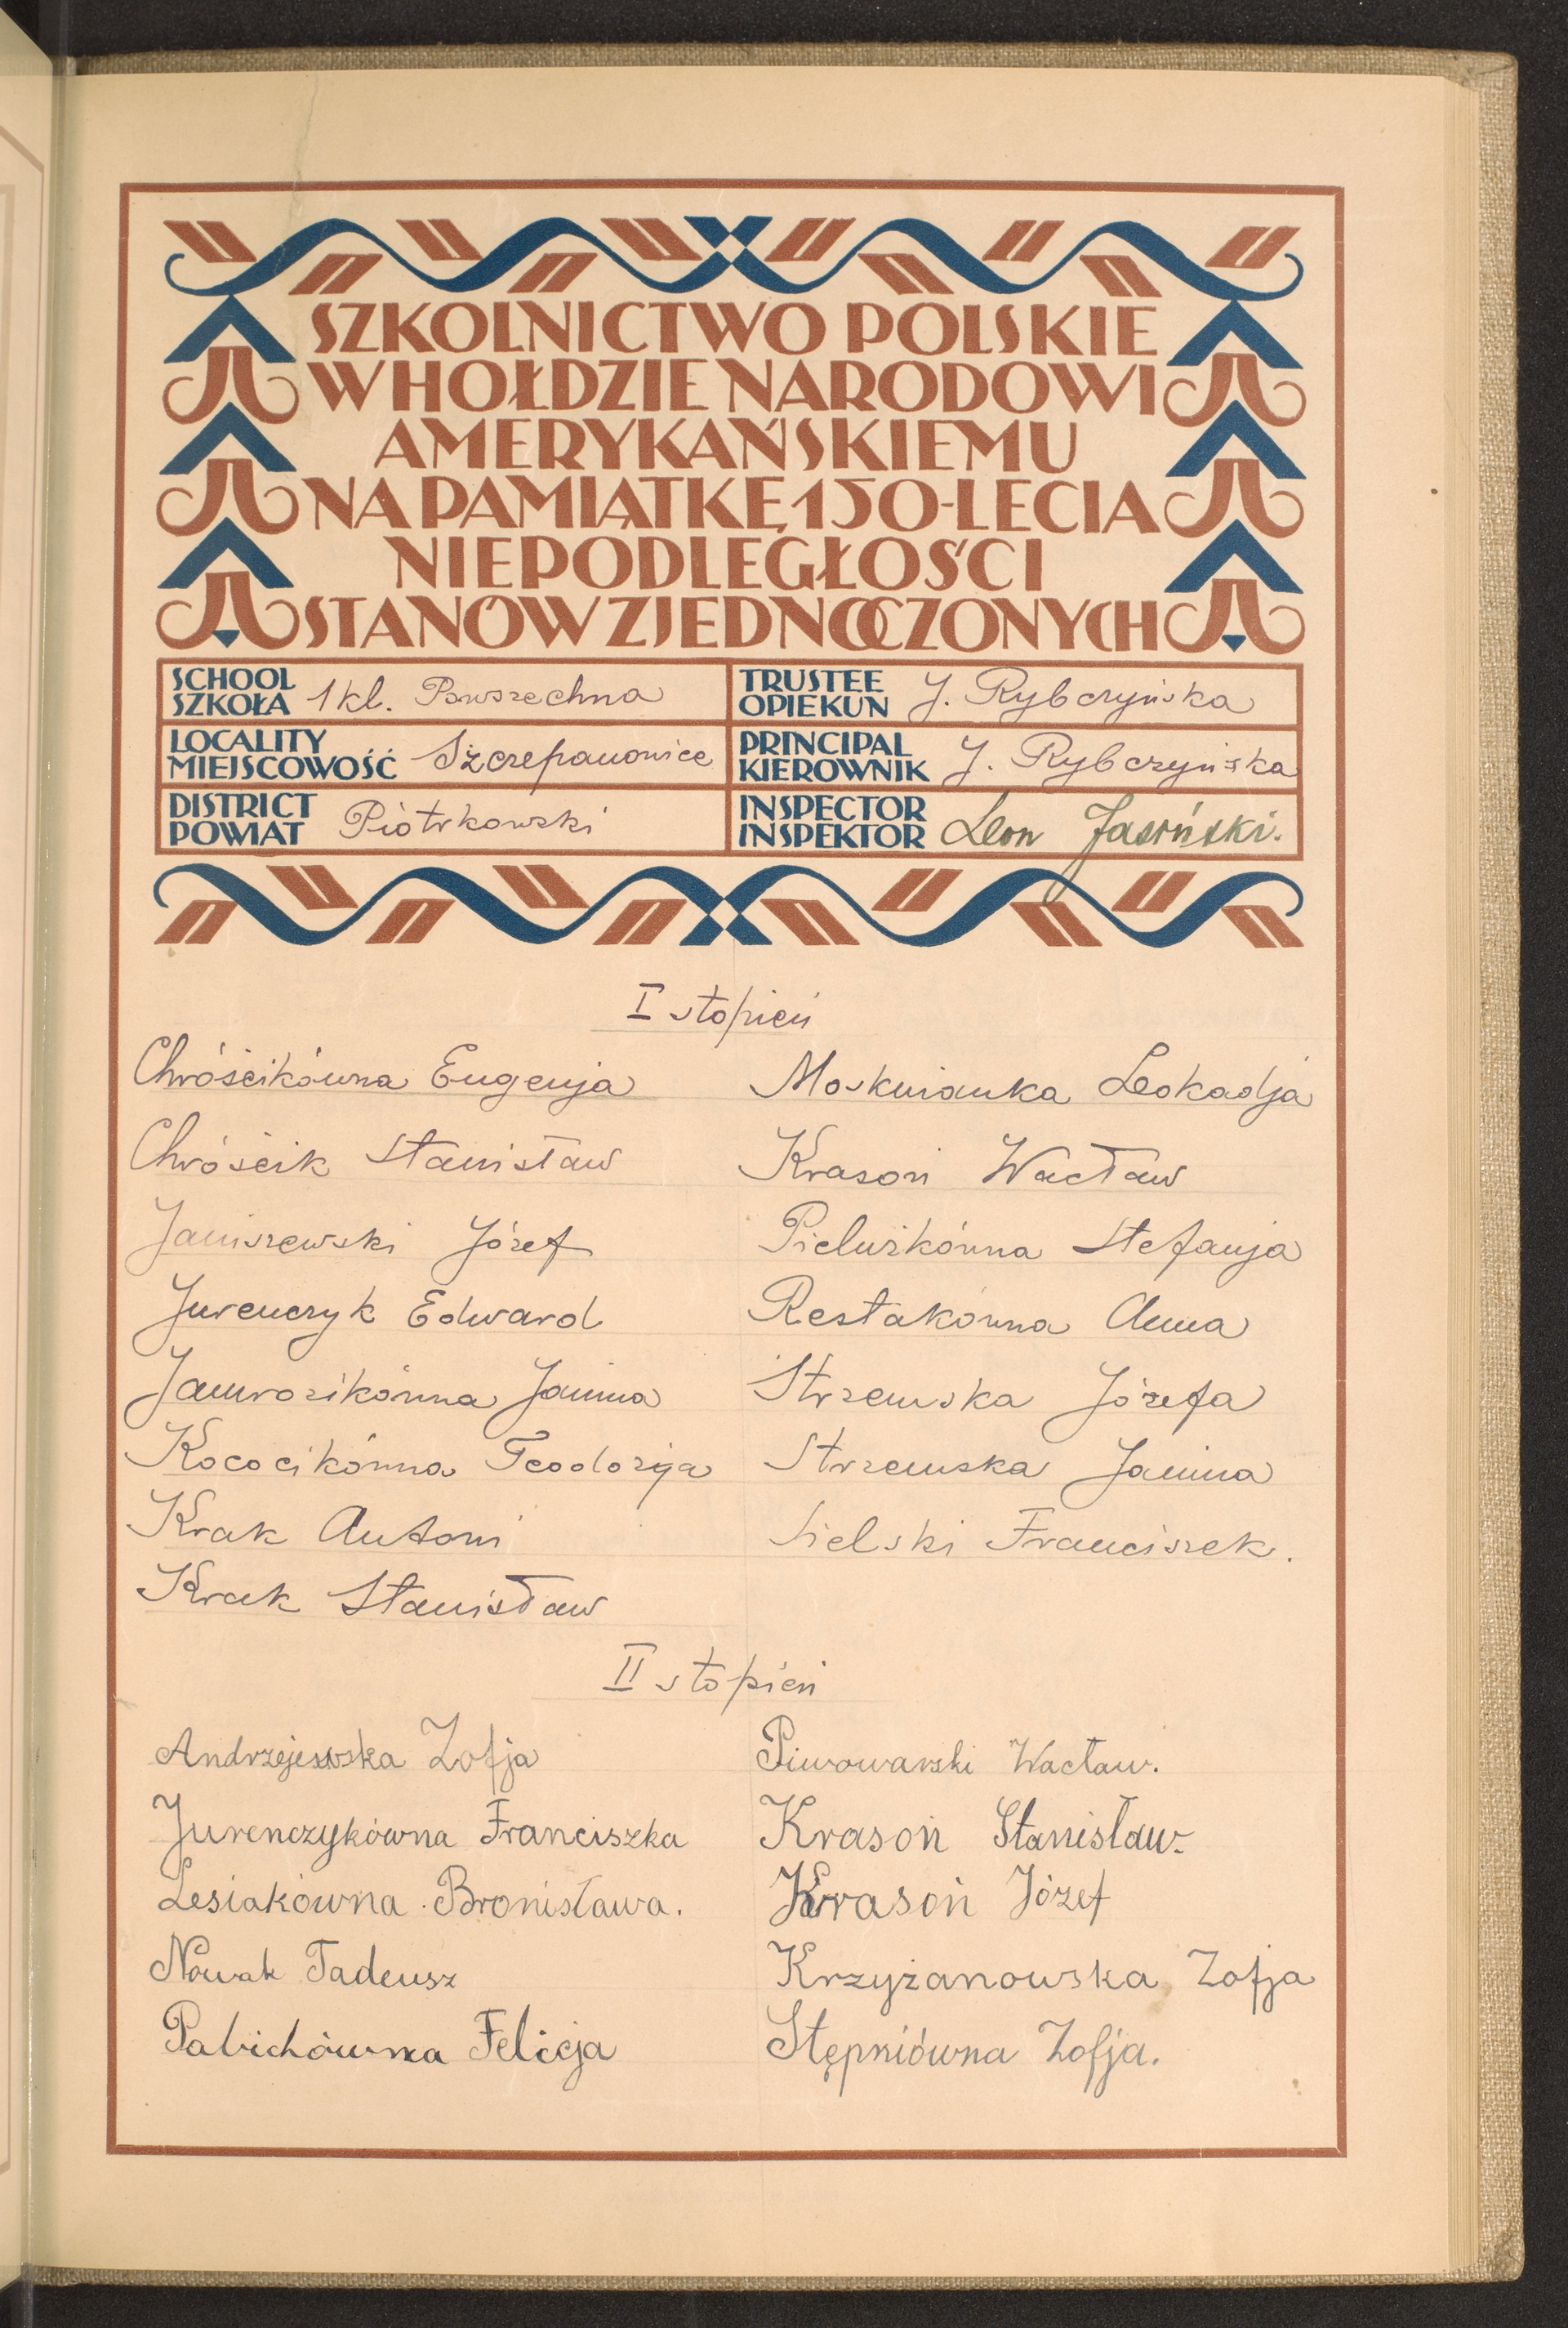 SZKOLNICTWO POLSKIE
W HOŁDZIE NARODOWI
AMERYKAŃSKIEMU
NA PAMIĄTKĘ 150-LECIA
NIEPODLEGŁOŚCI
STANÓW ZJEDNOCZONYCH
SCHOOL
SZKOŁA 1 kl. Powszechna
TRUSTEE
OPIEKUN J. Rybczyńska
LOCALITY
MIEJSCOWOŚĆ Szczepanowice
PRINCIPAL
KIEROWNIK J. Rybczyńska
DISTRICT
POWIAT Piotrkowski
INSPECTOR
INSPEKTOR Leon Jasiński.
I stopień
Chróścikówna Eugenja
Chróścik Stanisław
Janiszewski Józef
Jurenczyk Edward
Jamrozikówna Janina
Kococikówna Teodozja
Krak Antoni
Krak Stanisław
Moskwianka Leokadja
Krasoń Wacław
Pieluszkówna Stefanja
Restakówna Anna
Strzemska Józefa
Strzemska Janina
Sielski Franciszek.
II stopień
Andrzejewska Zofja
Jurenczykówna Franciszka
Lesiakówna Bronisława.
Nowak Tadeusz
Pabichówna Felicja
Piwowarski Wacław.
Krasoń Stanisław.
Krasoń Józef
Krzyżanowska Zofja
Stępniówna Zofja.